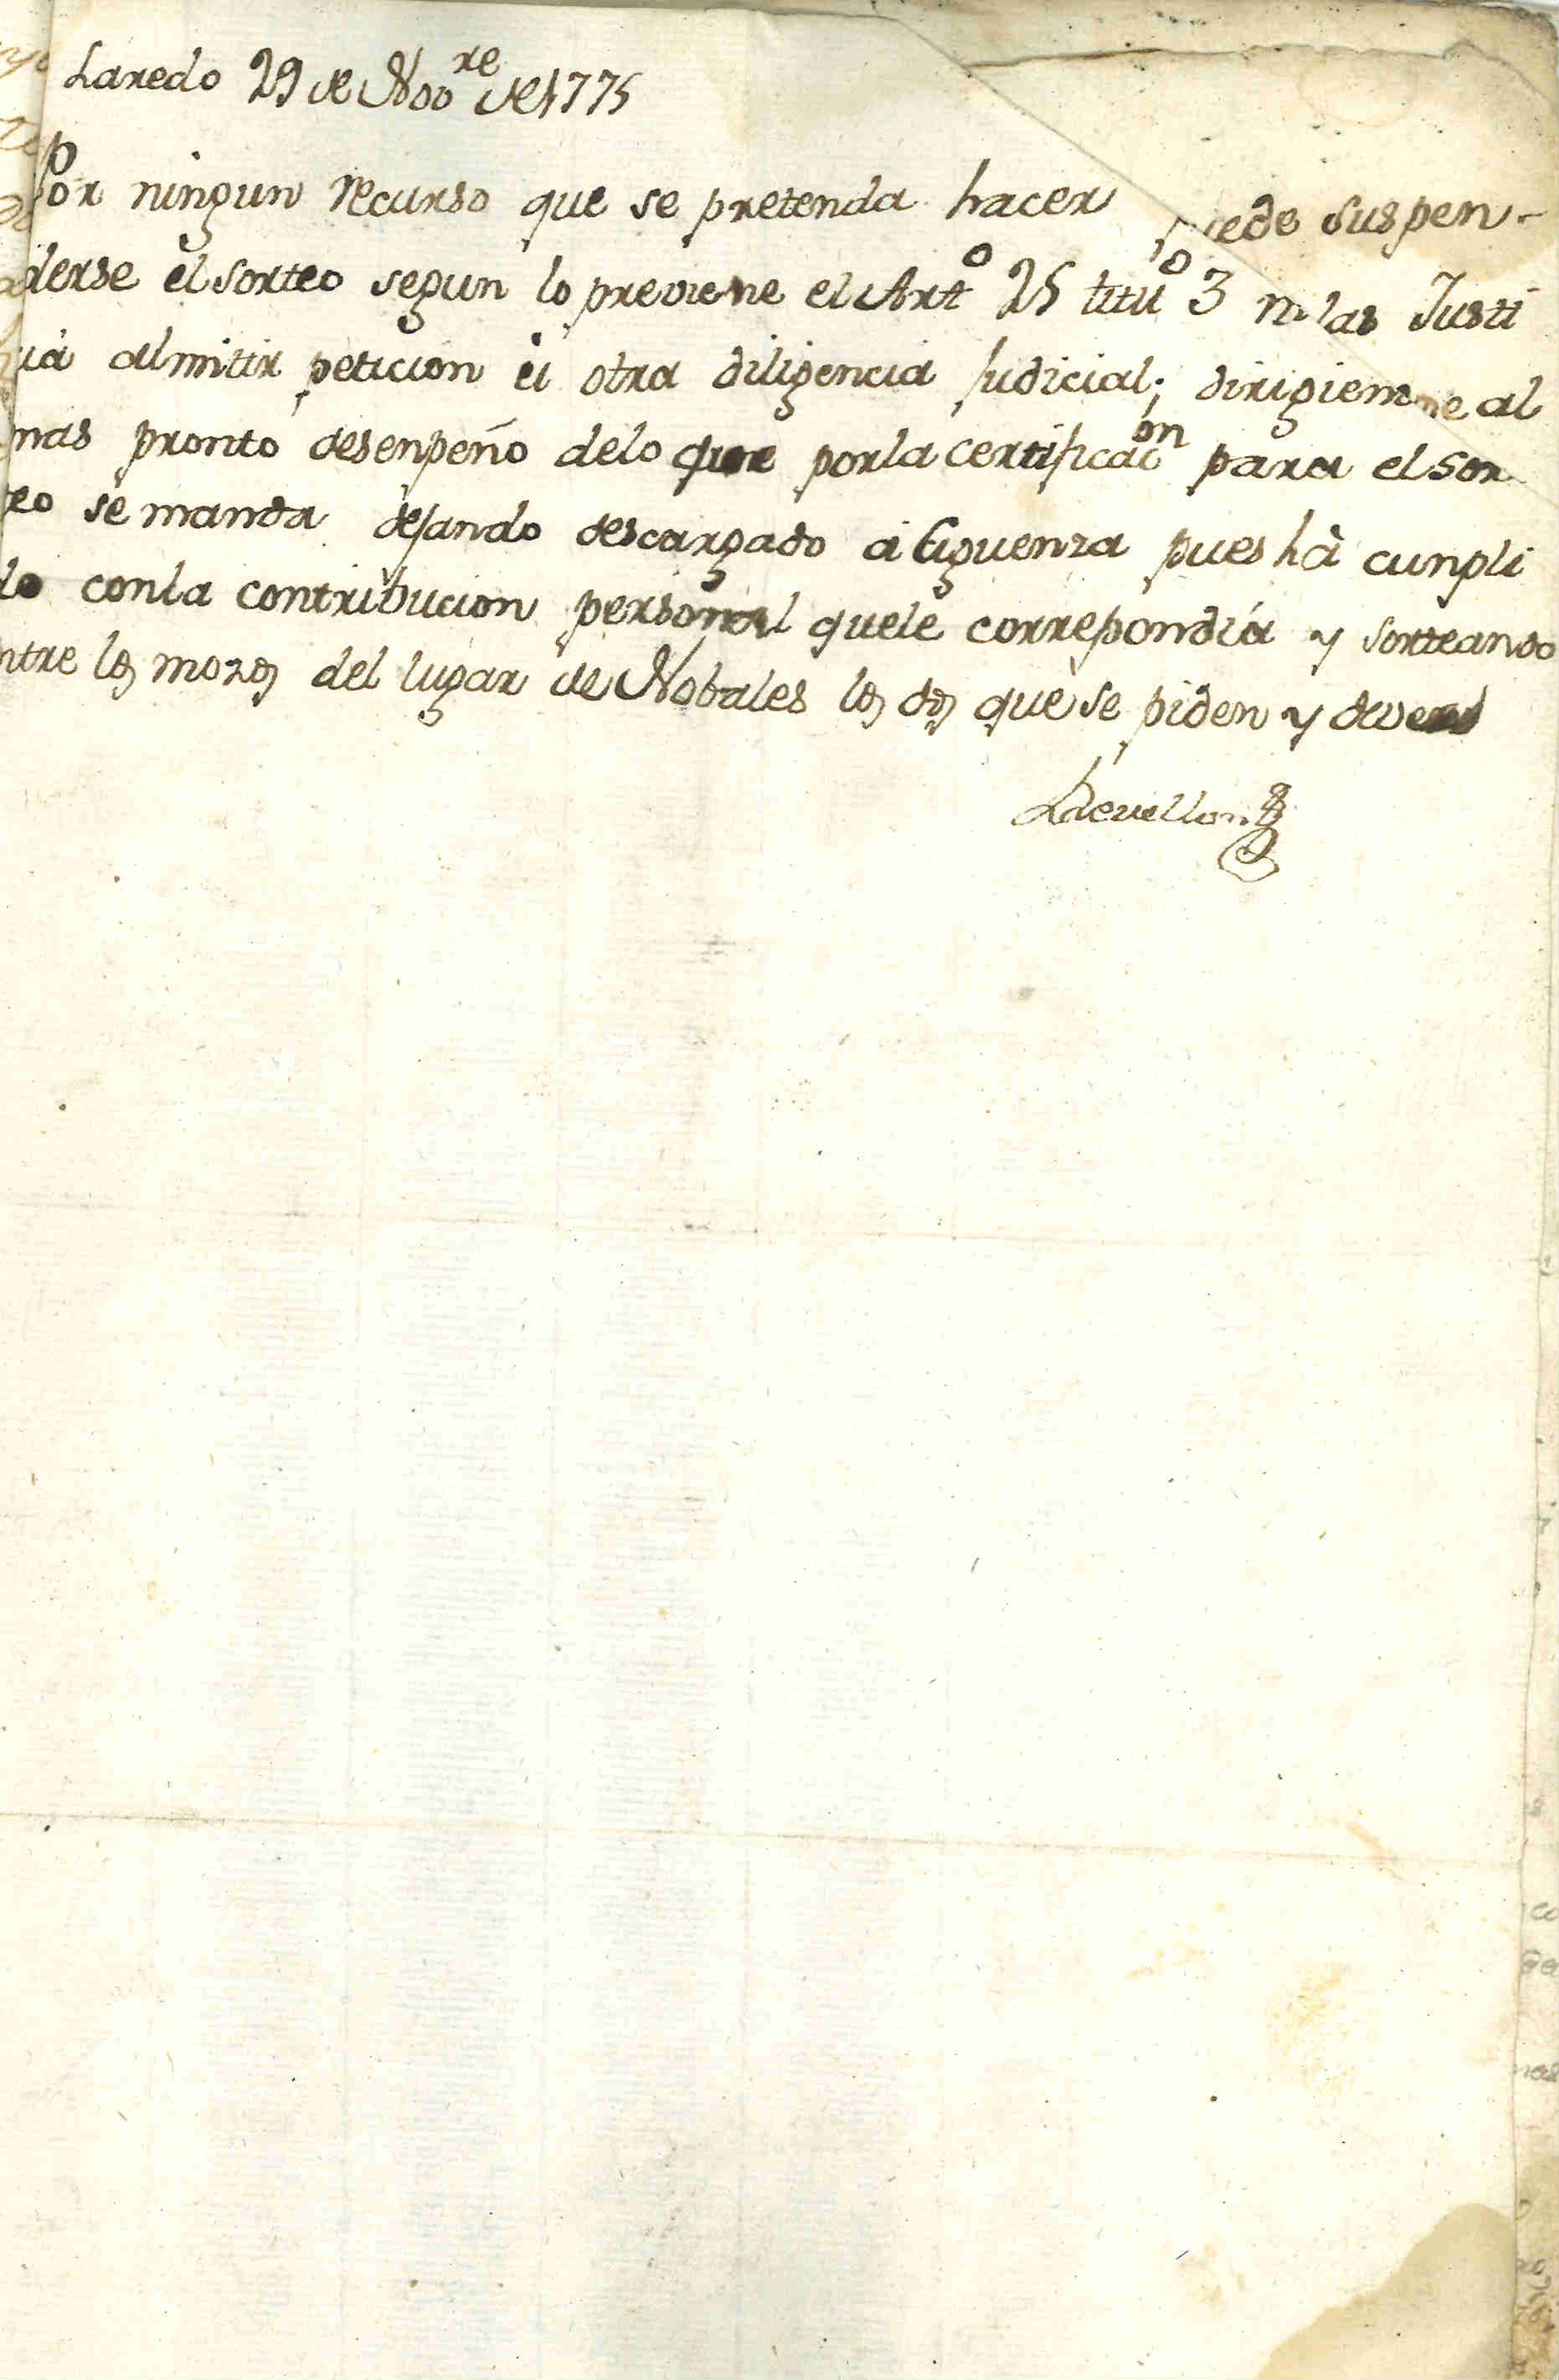 Laredo 29 de Novre de 1775
Por ningun recurso que se pretenda hacer puede suspen-
derse el sorteo segun lo previene el Arto 25 tituo 3 ni las Justi
cia almitir peticion ü otra diligencia Judicial; dirigiendose al
mas pronto desenpeño delo que porla certificacon para el sor
teo se manda dejando descargado à Eguenza pues hà cunpli
do conla contribucion personal quele correpondía y sorteando
entre los mozos del lugar de Nobales los dos que se piden y deven